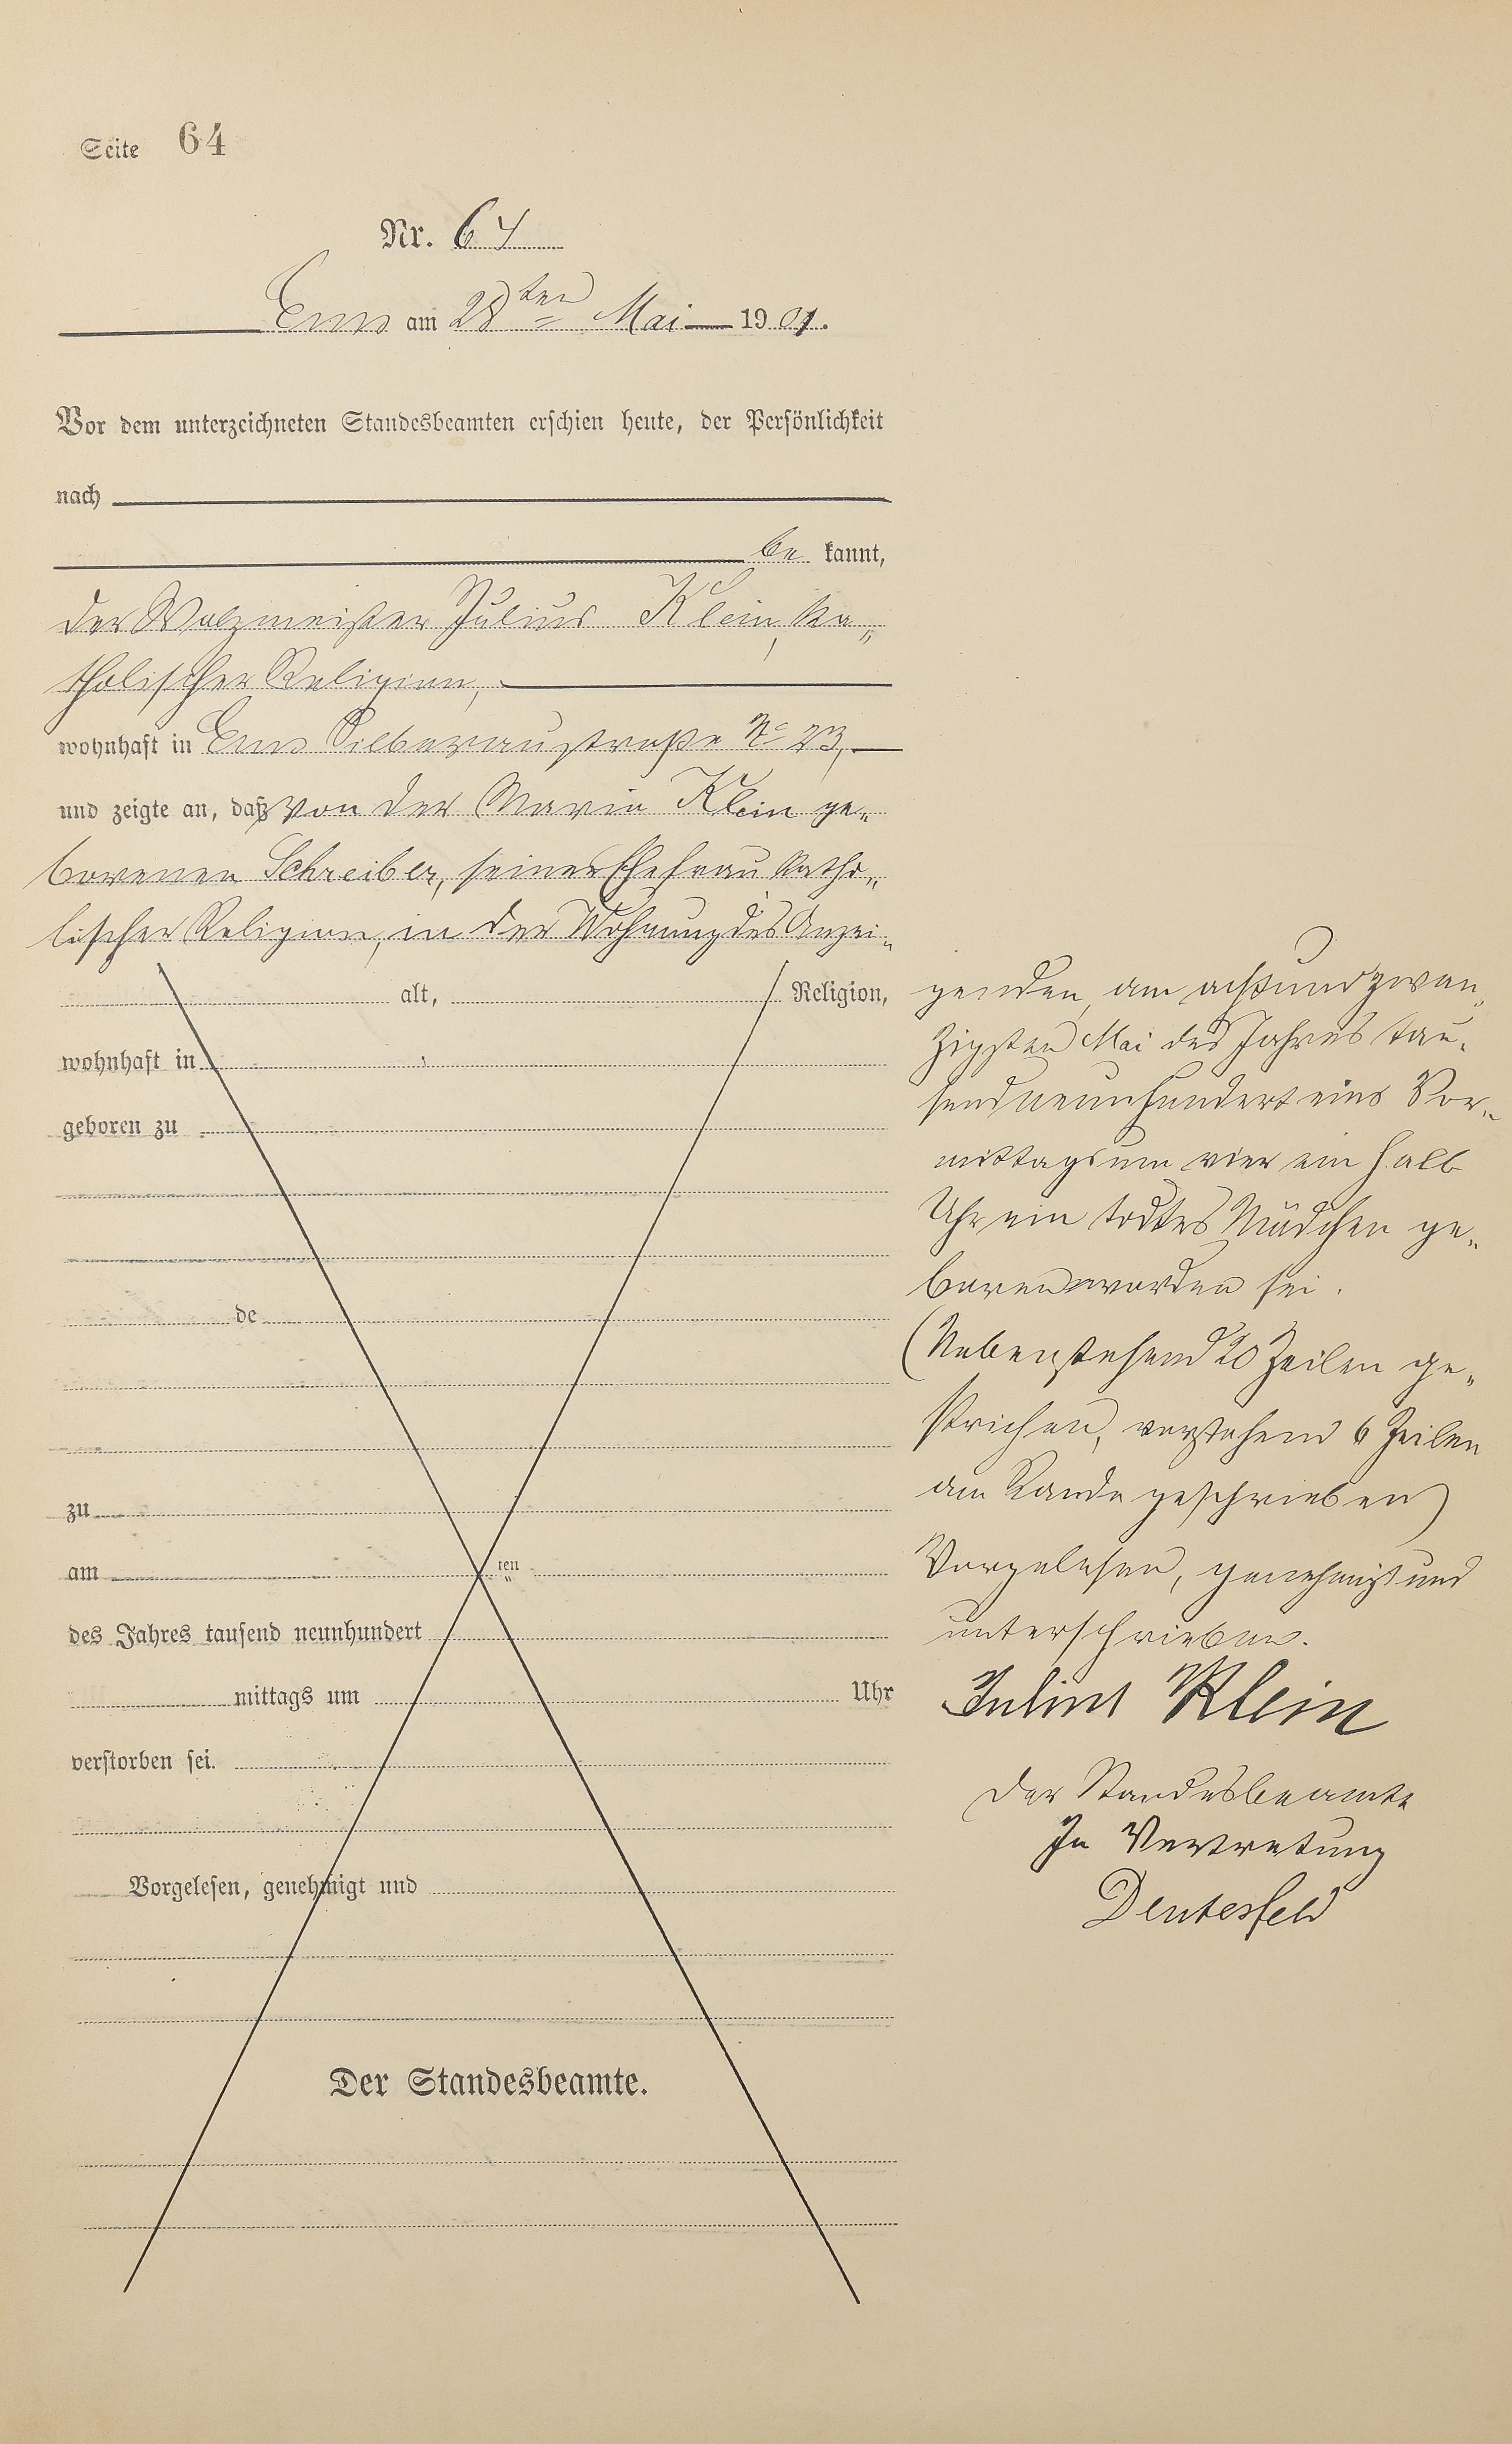 Seite 64
Nr. 64
Ems am 28ten Mai 1901.
Vor dem unterzeichneten Standesbeamten erschien heute, der Persönlichkeit
nach
be kannt,
der Walzmeister Julius Klein, ka„
tholischer Religion,
wohnhaft in Ems Silberaustraße No 23,
und zeigte an, daß von der Maria Klein ge„
borenen Schreiber, seiner Ehefrau katho„
lischer Religion, in der Wohnung des Anzei„
alt, Religion,
wohnhaft in
geboren zu
de
zu
am ten
des Jahres tausend neunhundert
mittags um Uhr
verstorben sei.
Vorgelesen, genehmigt und
Der Standesbeamte.
genden, am achtundzwan„
zigsten Mai des Jahres tau„
sendneunhundert eins Vor„
mittags um vier ein halb
Uhr ein todtes Mädchen ge„
boren worden sei.
(Nebenstehend 20 Zeilen ge„
strichen, vorstehend 6 Zeilen
am Rande geschrieben)
Vorgelesen, genehmigt und
unterschrieben.
Julius Klein
Der Standesbeamte
In Vertretung
Deutesfeld